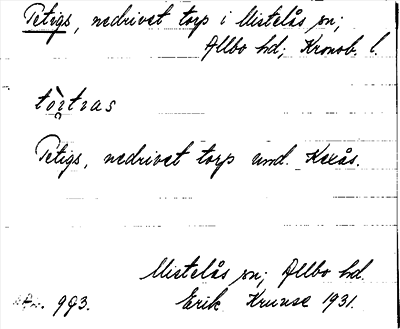 Petigs, nedrivet torp i Mistelås sn;
Allbo hd; Kronob. l.
Petigs, nedrivet torp und. Kexås.
Mistelås sn; Allbo hd.
993. Erik Kruuse 1931.